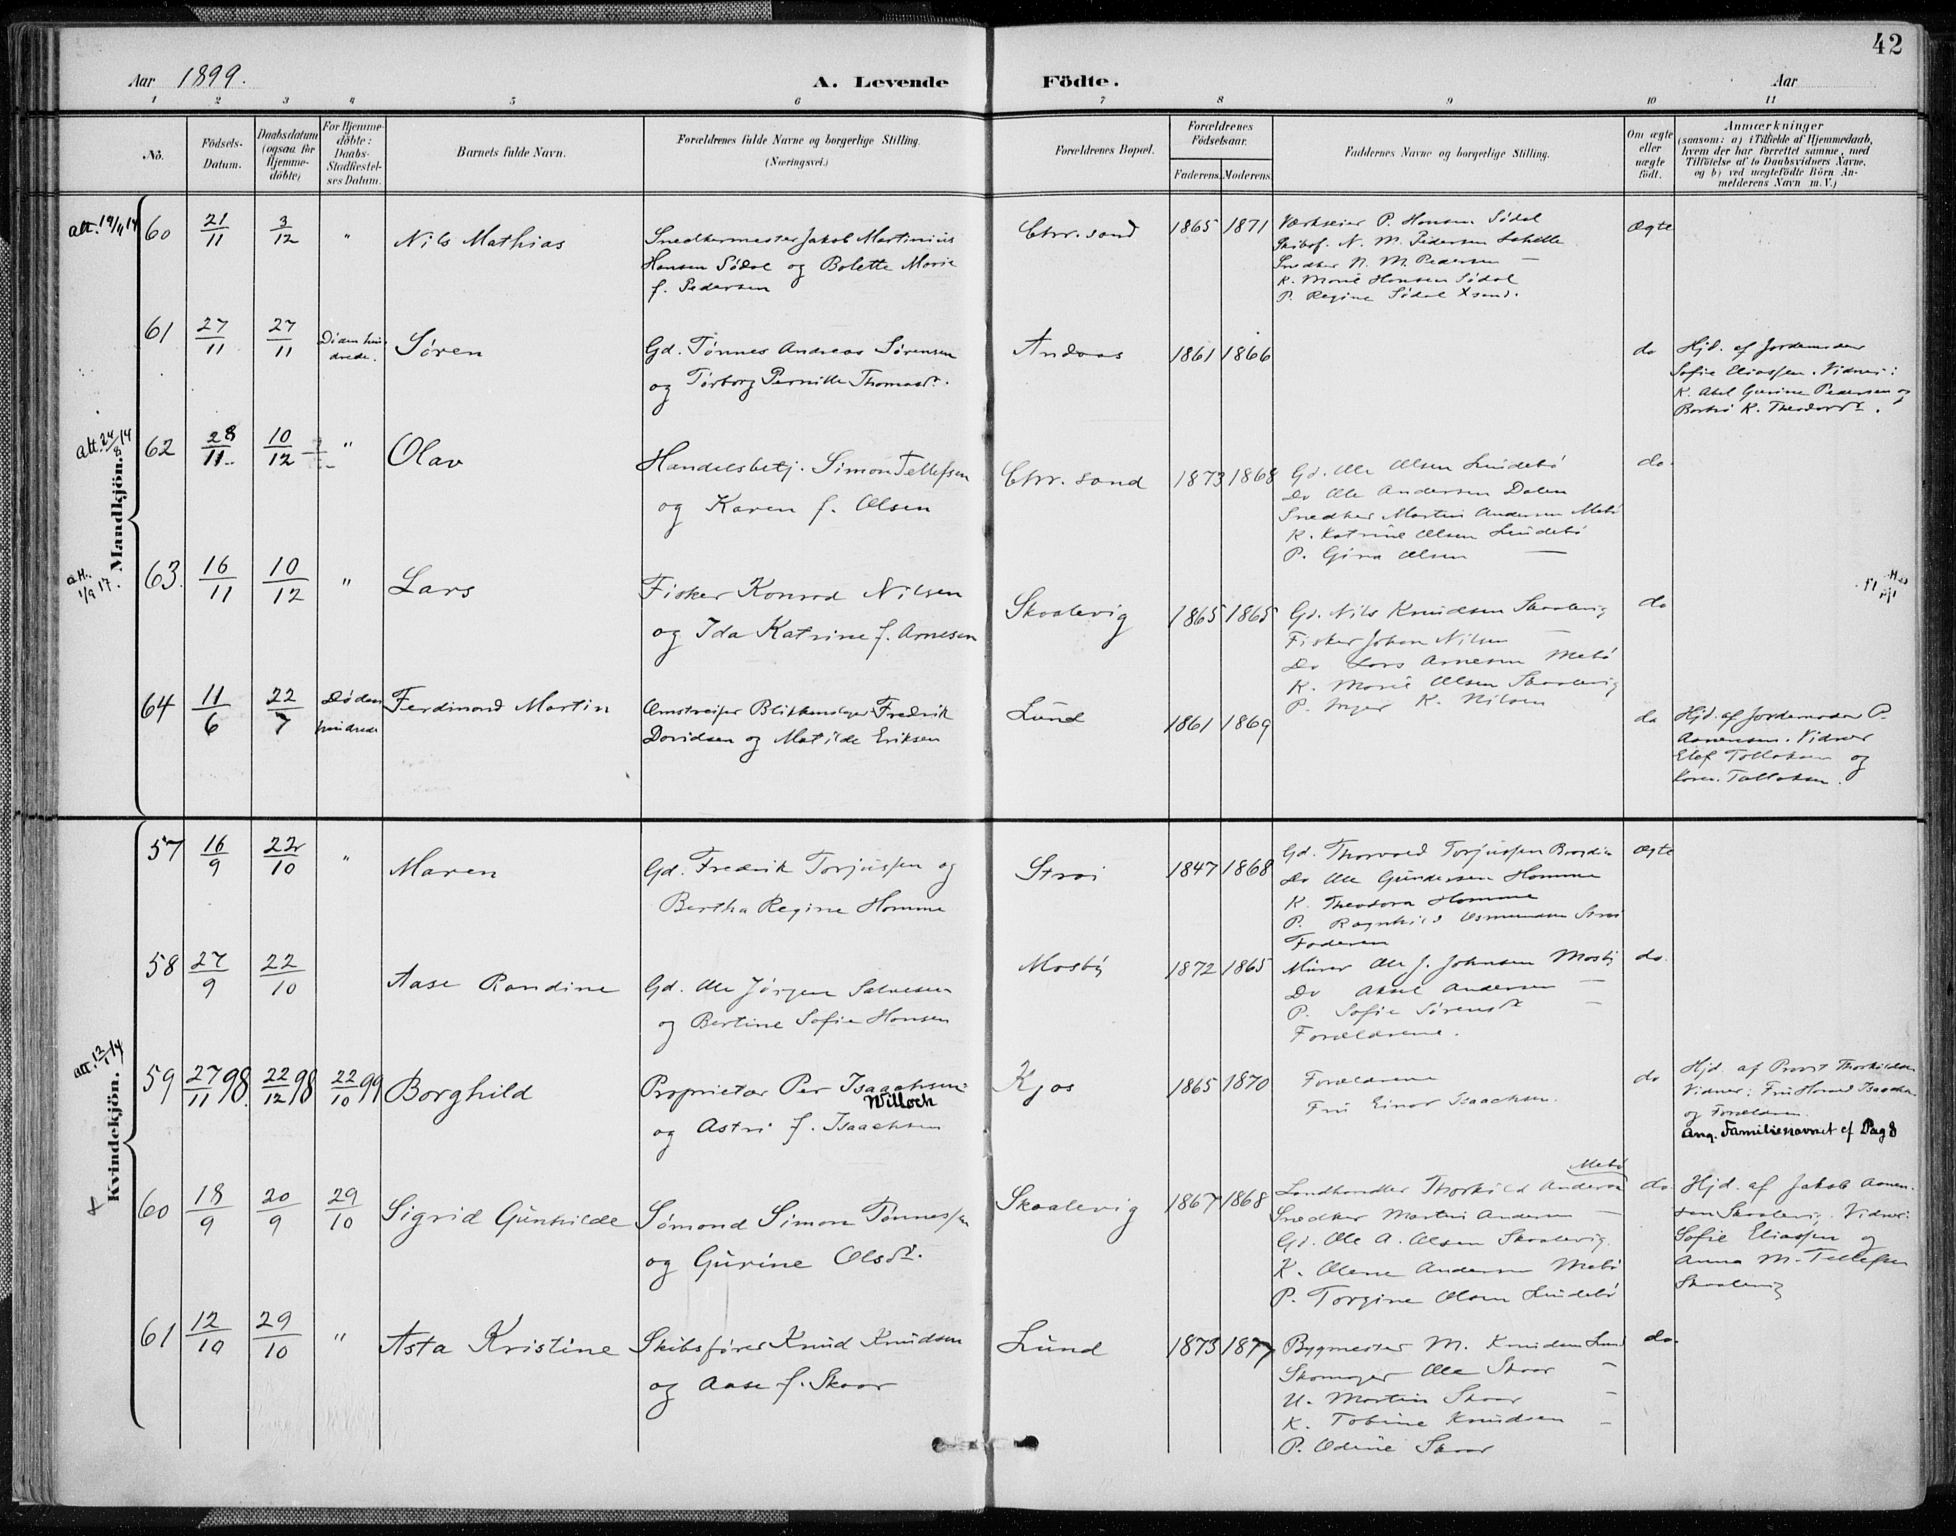 42
Aar 1899.
A. Levende Födte.
Aar
1 2 3 4 5 6 7 8 9 10 11
No.
Födsels-
Datum.
Daabsdatum
(ogsaa for
Hjemme-
döbte)
For Hjemme-
döbte:
Daabs-
Stadfæstel-
ses Datum.
Barnets fulde Navn.
Forældrenes fulde Navne og borgerlige Stilling.
(Næringsvei.)
Forældrenes Bopæl.
Forældrenes
Födselsaar.
Faderens. Moderens.
Faddernes Navne og borgerlige Stilling.
Om ægte
eller
uægte
födt.
Anmærkninger
(saasom: a) i Tilfælde af Hjemmedaab,
hvem der har forrettet samme, med
Tilföielse af to Daabsvidners Navne.
og b) ved uægtefödte Börn An-
melderens Navn m. V.)
Mandkjön.
att. 19/4 14
60
21/11
3/12
"
Nils Mathias
Snedkermester Jakob Martinius
Hansen Sødal og Bolette Marie
f. Pedersen
Chr.sand
1865 1871
Værkseier P. Hansen Sødal
Skibsf. N. M. Pedersen
Snedker N. M. Pedersen —
K. Marie Hansen Sødal
P. Regine Sødal Xsand.
Ægte
61
27/11
27/11
Døden hin-
drede.
Søren
Gd. Tønnes Andreas Sørensen
og Torborg Pernille Thomasdr.
Andaas
1861 1866
do
Hjd. af Jordemoder
Sofie Eliassen. Vidner:
K. Abel Gurine Pedersen og
K. Theodorsdr.
att. 24/8 14
62
28/11
10/12
"
Olav
Handelsbetj. Simon Tellefsen
og Karen f. Olsen
Chr.sand
1873 1868
Gd. Ole Olsen Lindebø
Do Ole Andersen Dalen
Snedker Martin Andersen Mebø
K. Katrine Olsen Lindebø
P. Gina Olsen —
do.
att. 1/9 17.
63.
16/11
10/12
"
Lars
Fisker Konrad Nilsen
og Ida Katrine f. Arnesen
Skaalevig
1865 1865
Gd. Nils Knudsen Skaalevig
Fisker Johan Nilsen —
Do Lars Arnesen Mebø
K. Marie Olsen Skaalevig
P. Inger K. Nilsen
do
64
11/6
22/7
Døden
hindrede
Ferdinand Martin
Omstreifer Blikkenslager Fredrik
Davidsen og Matilde Eriksen
Lund
1861 1869
do
Hjd. af Jordemoder P.
Aanensen. Vidner
Elef Tallaksen og
Karen Tallaksen.
Kvindekjön.
57
16/9
22/10
"
Maren
Gd. Fredrik Torjussen og
Bertha Regine Homme
Strai
1847 1868
Gd. Thorvald Torjussen
Do Ole Gundersen Homme
K. Theodora Homme
P. Ragnhild Osmundsen Strai
Faderen
Ægte
58
27/9
22/10
Aase Randine
Gd. Ole Jørgen Salvesen
og Bertine Sofie Hansen
Mosby
1872 1865
Murer Ole J. Johnsen Mosby
Do Aksel Andersen —
P. Sofie Sørensdr —
Forældrene.
do.
att. 12/1 14
59
27/11 98.
22/12 98
22/10 99
Borghild
Proprietær Per Isaachsen
Willoch
og Astri f. Isaachsen
Kjos
1865 1870
Forældrene
Fru Einar Isaachsen.
do
Hjd. af Provst Thorkildsen
Vidner: Fru Isaachsen
og Forældrene.
Ang. Familienavnet cf Pag 8
60
18/9
20/9
29/10
Sigrid Gunhilde
Sømand Simon Tønnessen
og Gurine Olsdr.
Skaalevig
1867 1868
Mebø
Landhandler Thorkild Andersen
Snedker Martin Andersen —
Gd. Ole A. Olsen Skaalevig.
K. Olene Andersen Mebø
P. Torgine Olsen Lindebø
do.
Hjd. af Jakob Aanen-
sen Skaalevig. Vidner:
Sofie Eliassen og
Anna M. Tellefsen
Skaalevig
61
12/10
29/10
"
Asta Kristine
Skibsfører Knud Knudsen
og Aase f. Skaar
Lund
1873 1877
Bygmester M. Knudsen Lund
Skomager Ole Skaar —
U. Martin Skaar —
K. Tobine Knudsen —
P. Odine Skaar
do.